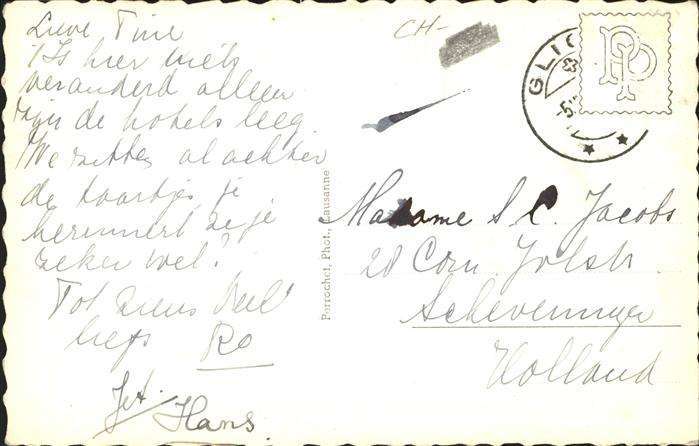 Lieve Tine
't Is hier niets
veranderd alleen
zijn de hotels leeg.
We zitten al achter
de taartjes je
herinnert ze je
zeker wel?
Tot ziens Veel
liefs Ro
Jet Hans.
CH-
GLI
-5
PP
Perrochet, Phot., Lausanne
Madame S. C. Jacobs
28 Corn. Jolstr.
Scheveningen
Holland